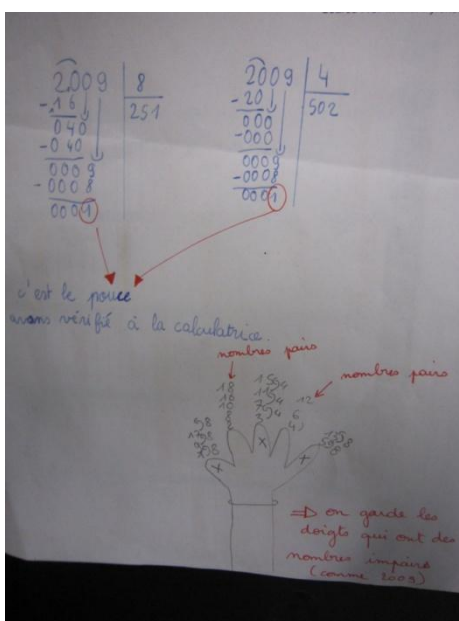 2009 | 8
-16 | 251
040
-040
0009
-0008
0001
2009 | 4
-20 | 502
000
-000
0009
-0008
0001
c'est le pouce
avons vérifié à la calculatrice.
nombres pairs
nombres pairs
18
16
10
8
2
15
11
7
3
12
6
4
=> on garde les
doigts qui ont des
nombres impairs
(comme 2009)